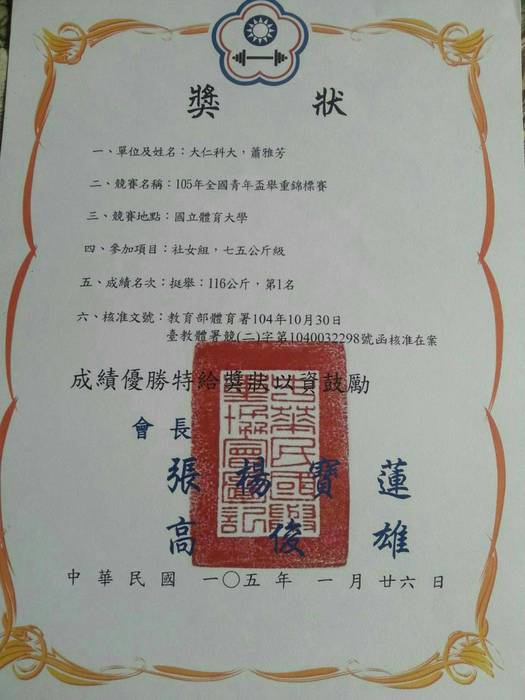 獎狀
一、單位及姓名：大仁科大，蕭雅芳
二、競賽名稱：105年全國青年盃舉重錦標賽
三、競賽地點：國立體育大學
四、參加項目：社女組，七五公斤級
五、成績名次：挺舉：116公斤，第1名
六、核准文號：教育部體育署104年10月30日
臺教體署競(二)字第1040032298號函核准在案
成績優勝特給獎狀以資鼓勵
會長
張楊寶蓮
高俊雄
中華民國舉重協會圖記
中華民國一〇五年一月廿六日